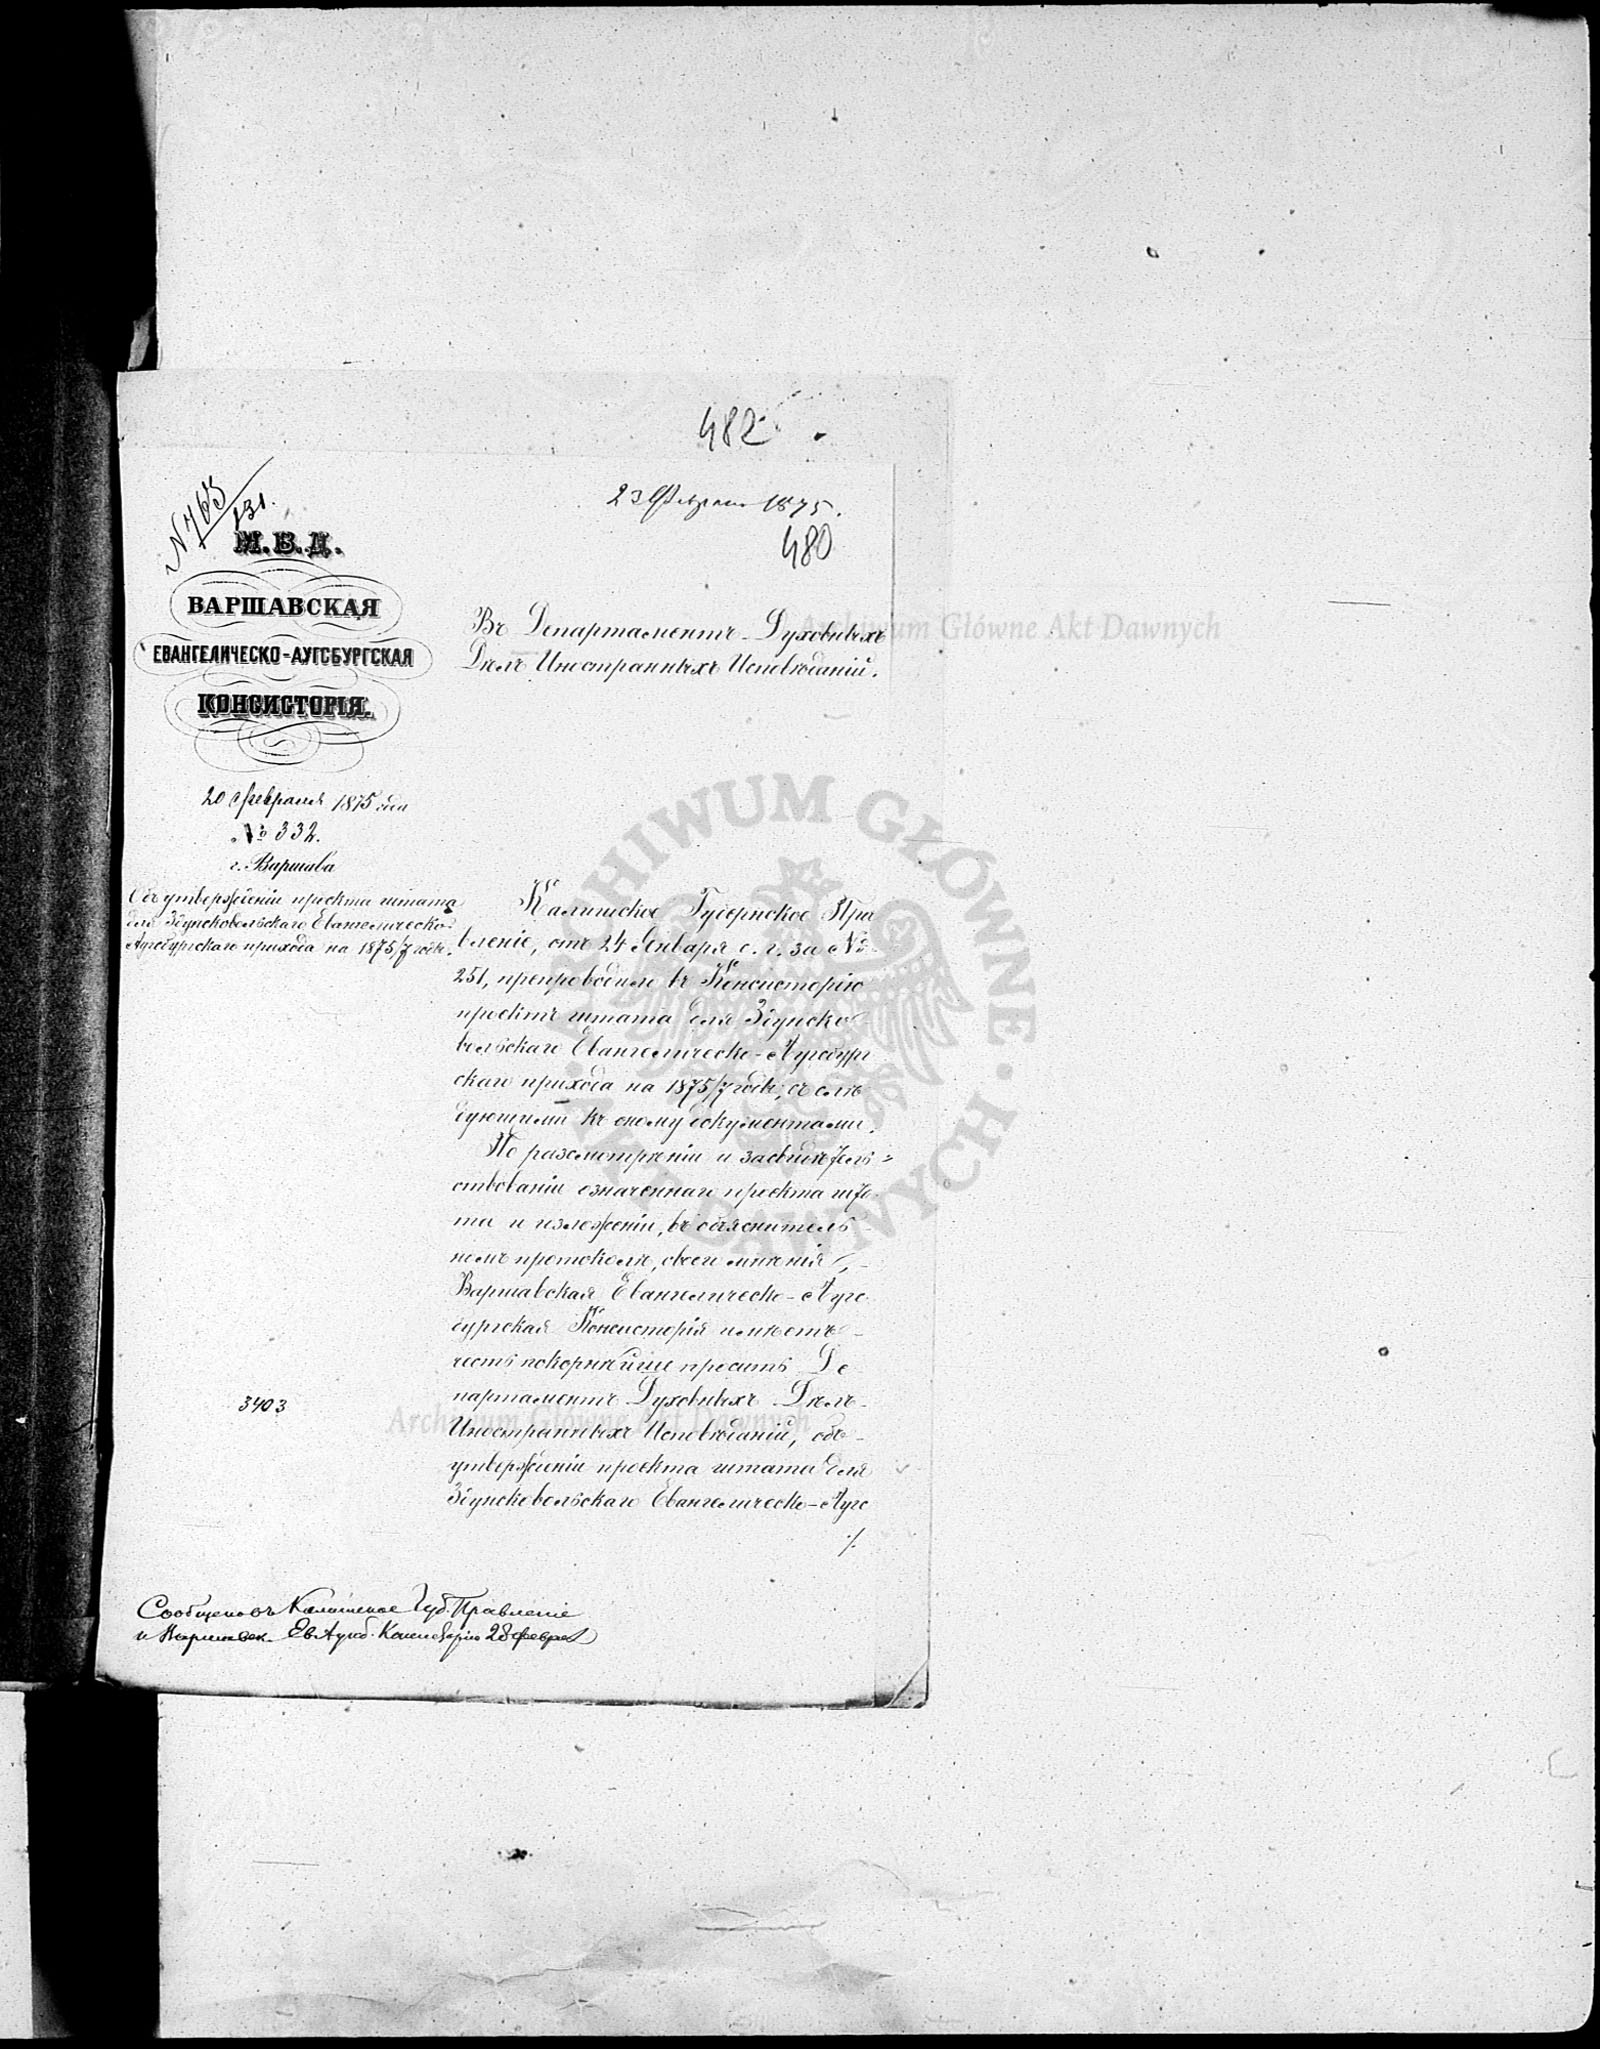 482
23 Февраля 1875.
480
№ 763/131.
М. В. Д.
ВАРШАВСКАЯ
ЕВАНГЕЛИЧЕСКО-АУГСБУРГСКАЯ
КОНСИСТОРІЯ.
20 Февраля 1875 года
№ 332.
г. Варшава
Объ утвержденіи проекта штата
для Здунсковольскаго Евангелическо-
Аугсбургскаго прихода на 1875/7 годы.
Въ Департаментъ Духовныхъ
Дѣлъ Иностранныхъ Исповѣданій.
Калишское Губернское Пра
вленіе, отъ 24 Января с. г. за №
251, препроводило въ Консисторію
проектъ штата для Здунско-
вольскаго Евангелическо-Аугсбург
скаго прихода на 1875/7 годы, съ слѣ
дующими къ оному документами.
По разсмотрѣніи и засвидѣтель=
ствованіи означеннаго проекта шта
та и изложеніи, въ объяснитель-
номъ протоколѣ, своего мнѣнія,
Варшавская Евангелическо-Аугс
бургская Консисторія имѣетъ
честь покорнѣйше просить Де
партаментъ Духовныхъ Дѣлъ
Иностранныхъ Исповѣданій, объ
утвержденіи проекта штата для
Здунсковольскаго Евангелическо-Аугс
./.
3403
Сообщено въ Калишское Губ. Правленіе
и Варшавск. Ев Аугсб. Консисторію 28 февр
Archiwum Główne Akt Dawnych
Archiwum Główne Akt Dawnych
ARCHIWUM GŁÓWNE AKT DAWNYCH